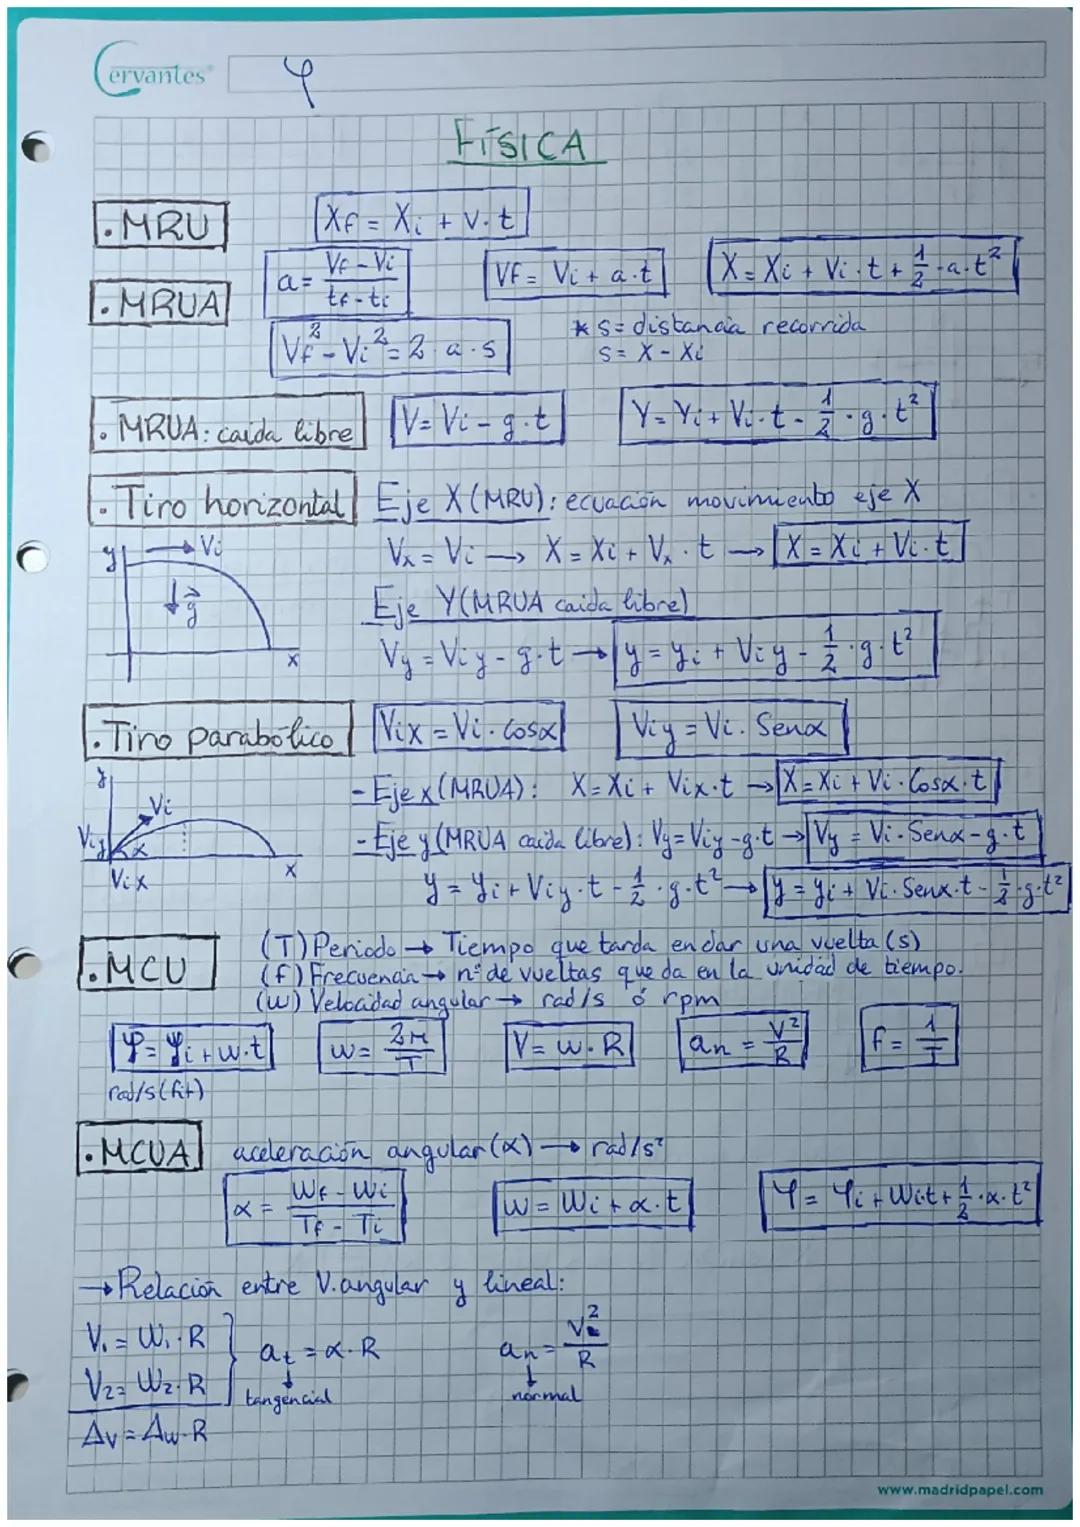 Cervantes
φ
FÍSICA
. MRU Xf = Xi + v·t
. MRUA a = (Vf - Vi)/(tf - ti) Vf = Vi + a·t X = Xi + Vi·t + 1/2·a·t²
Vf² - Vi² = 2·a·s * s = distancia recorrida
s = X - Xi
. MRUA: caída libre V = Vi - g·t Y = Yi + Vi·t - 1/2·g·t²
. Tiro horizontal Eje X (MRU): ecuación movimiento eje X
y Vi Vx = Vi → X = Xi + Vx·t → X = Xi + Vi·t
↓g⃗ Eje Y (MRUA caída libre)
x Vy = Viy - g·t → y = yi + Viy - 1/2·g·t²
. Tiro parabólico Vix = Vi·cosα Viy = Vi·Senα
y Vi - Eje x (MRUA): X = Xi + Vix·t → X = Xi + Vi·Cosα·t
Viy α - Eje y (MRUA caída libre): Vy = Viy - g·t → Vy = Vi·Senα - g·t
Vix x y = yi + Viy·t - 1/2·g·t² → y = yi + Vi·Senα·t - 1/2·g·t²
. MCU (T) Periodo → Tiempo que tarda en dar una vuelta (s)
(f) Frecuencia → nº de vueltas que da en la unidad de tiempo.
(w) Velocidad angular → rad/s ó rpm
φ = φi + w·t w = 2π/T V = w·R an = V²/R f = 1/T
rad/s (fit)
. MCUA aceleración angular (α) → rad/s²
α = (Wf - Wi)/(Tf - Ti) w = Wi + α·t φ = φi + Wit + 1/2·α·t²
→ Relación entre V. angular y lineal:
V₁ = W₁·R at = α·R an = V²/R
V₂ = W₂·R tangencial normal
Δv = Δw·R
www.madridpapel.com